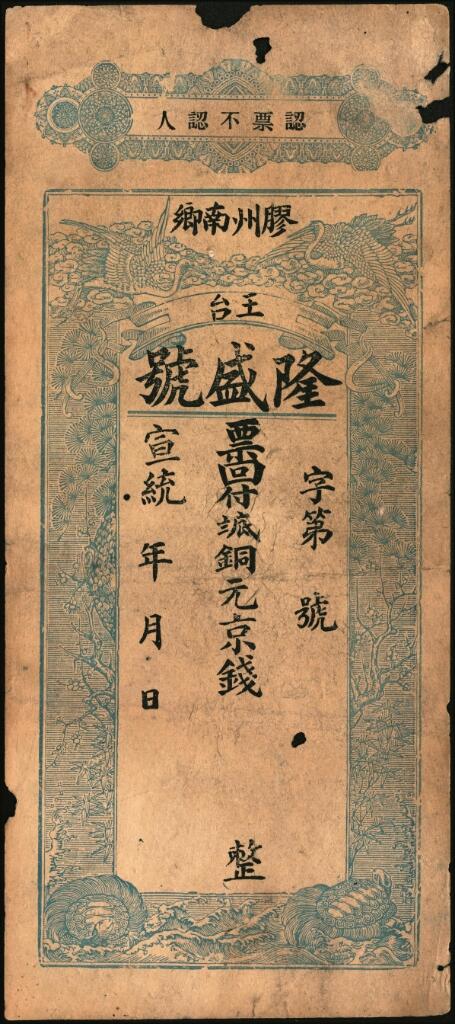 認票不認人
膠州南鄉
王台
隆盛號
字第　號
票回付㡳銅元京錢　整
宣統　年　月　日